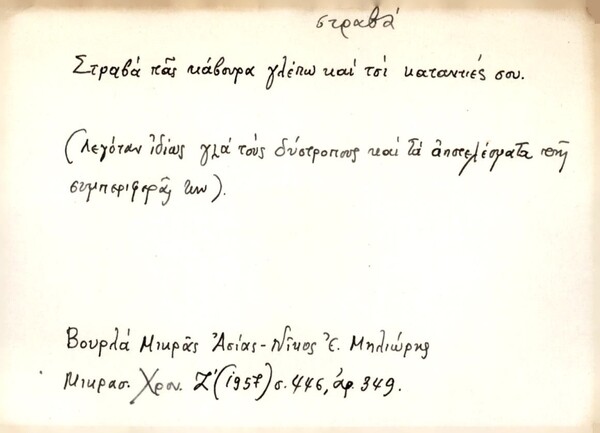 στραβά
Στραβά πᾶς κάβουρα γλέπω καί τσί καταντιές σου.
(Λεγόταν ἰδίως γιά τούς δύστροπους καί τά ἀποτελέσματα τῆς
συμπεριφορᾶς των).
Βουρλά Μικρᾶς Ἀσίας - Νῖκος Ε. Μηλιώρης
Μικρασ. Χρον. Ζ' (1957) σ. 446, ἀρ. 349.